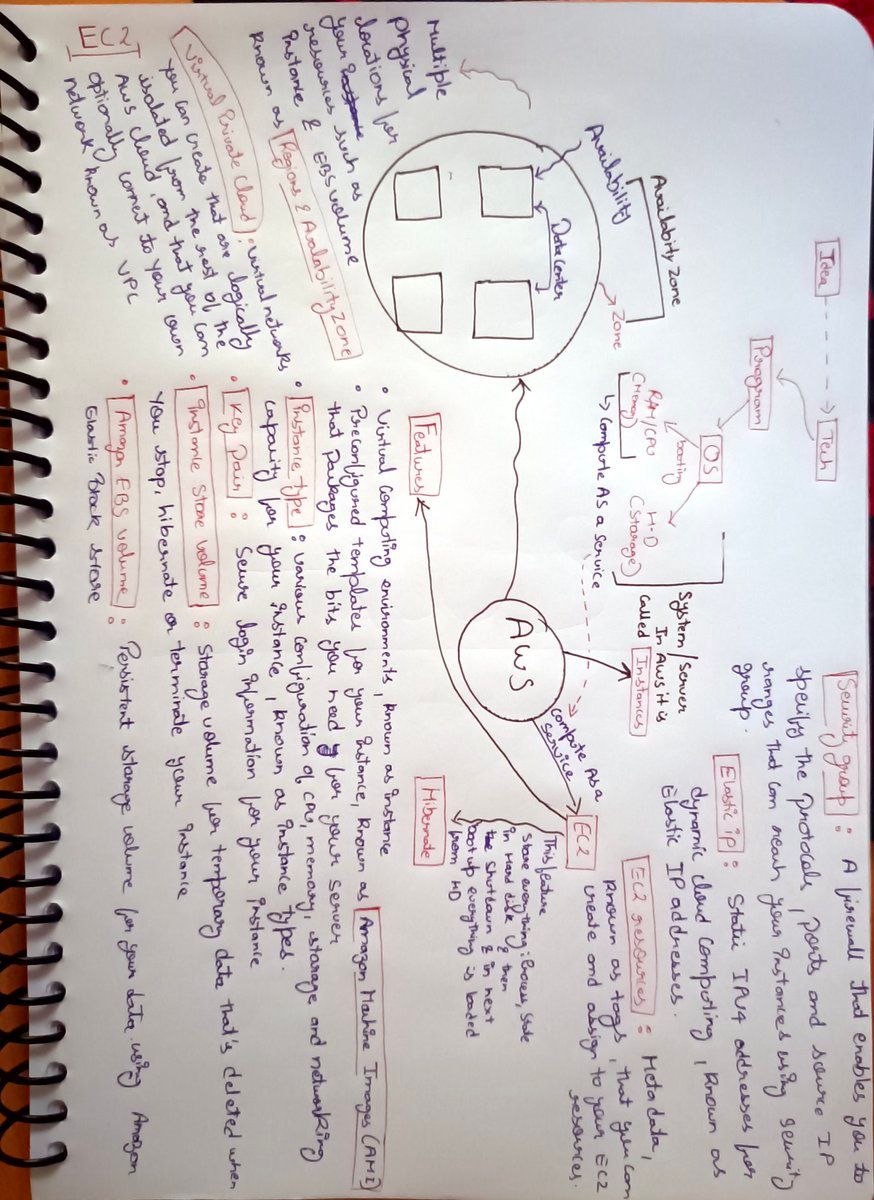 Idea
Tech
Program
OS
booting
RAM/CPU
(Memory)
H-D
(Storage)
↳ Compute AS a service
System/Server
In AWS it is
called Instances
Availability Zone
Availability
Zone
Data Center
Multiple
physical
locations for
your
resources such as
instance & EBS volume
known as Regions & Availability Zone
AWS
Compute As a
service
EC2
This feature
Store everything: Process, State
in Hard disk & then
shutdown & in next
boot up everything is loaded
from HD
Hibernate
Security group: A firewall that enables you to
specify the protocols, ports and source IP
ranges that can reach your instances using security
group.
Elastic IP: Static IPv4 addresses for
dynamic cloud computing, known as
Elastic IP addresses.
EC2 resources: Metadata,
known as tags, that you can
create and assign to your EC2
resources.
Features
• Virtual computing environments, known as instance
• Preconfigured templates for your instance, known as Amazon Machine Images (AMI)
that packages the bits you need for your server
• Instance type: various configuration of CPU, memory, storage and networking
capacity for your instance, known as instance types.
• Key Pair: Secure login information for your instance
• Instance Store volume: Storage volume for temporary data that's deleted when
you stop, hibernate or terminate your instance
• Amazon EBS volume: Persistent storage volume for your data using Amazon
Elastic Block store
EC2
Virtual Private Cloud: virtual networks
you can create that are logically
isolated from the rest of the
AWS cloud, and that you can
optionally connect to your own
network known as VPC